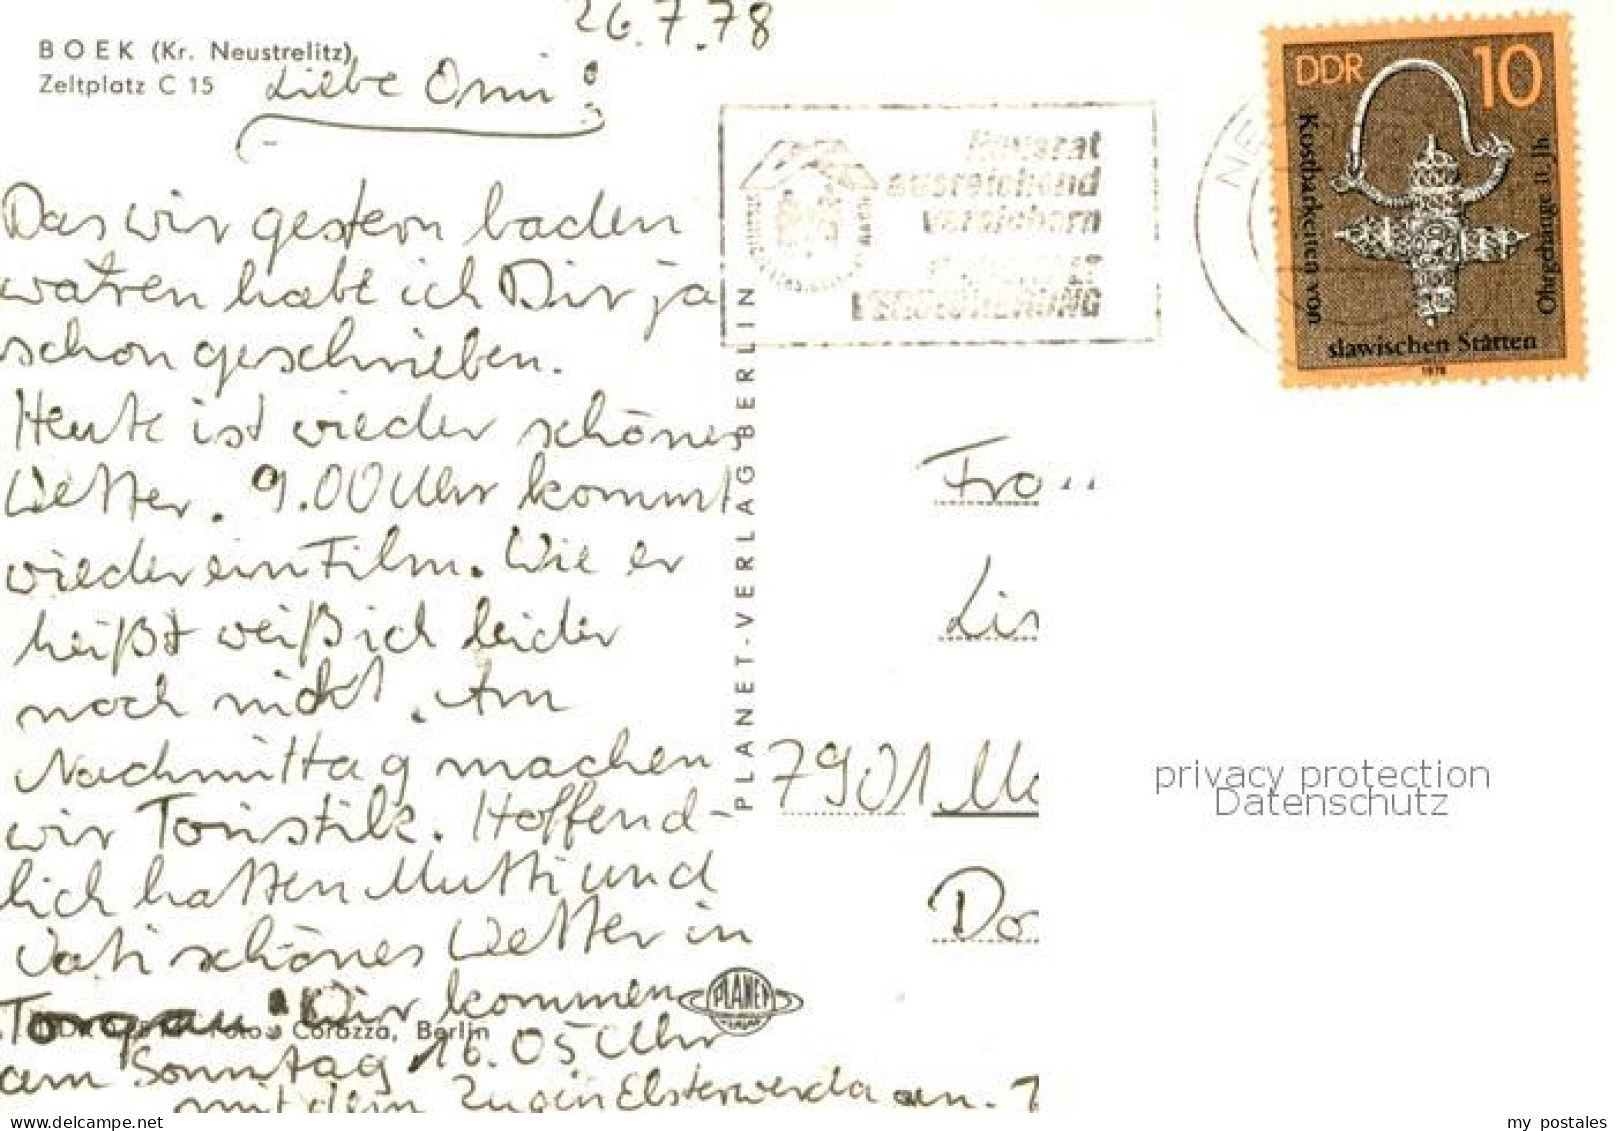 26.7.78
BOEK (Kr. Neustrelitz)
Zeltplatz C 15
Liebe Omi!
Das wir gestern baden
waren habe ich Dir ja
schon geschrieben.
Heute ist wieder schönes
Wetter. 9.00 Uhr kommt
wieder ein Film. Wie er
heißt weiß ich leider
noch nicht. Am
Nachmittag machen
wir Touristik. Hoffend-
lich hatten Mutti und
Vati schönes Wetter in
Torgau. Wir kommen
Corazza, Berlin
am Sonntag 16.05 Uhr
mit dem Zug in Elsterwerda an.
PLANET-VERLAG BERLIN
PLANET
Hausrat
ausreichend
versichern
VERSICHERUNG
DDR 10
Kostbarkeiten von
slawischen Stätten
Ohrgehänge 11. Jh
1978
Frau
7901
privacy protection
Datenschutz
my postales